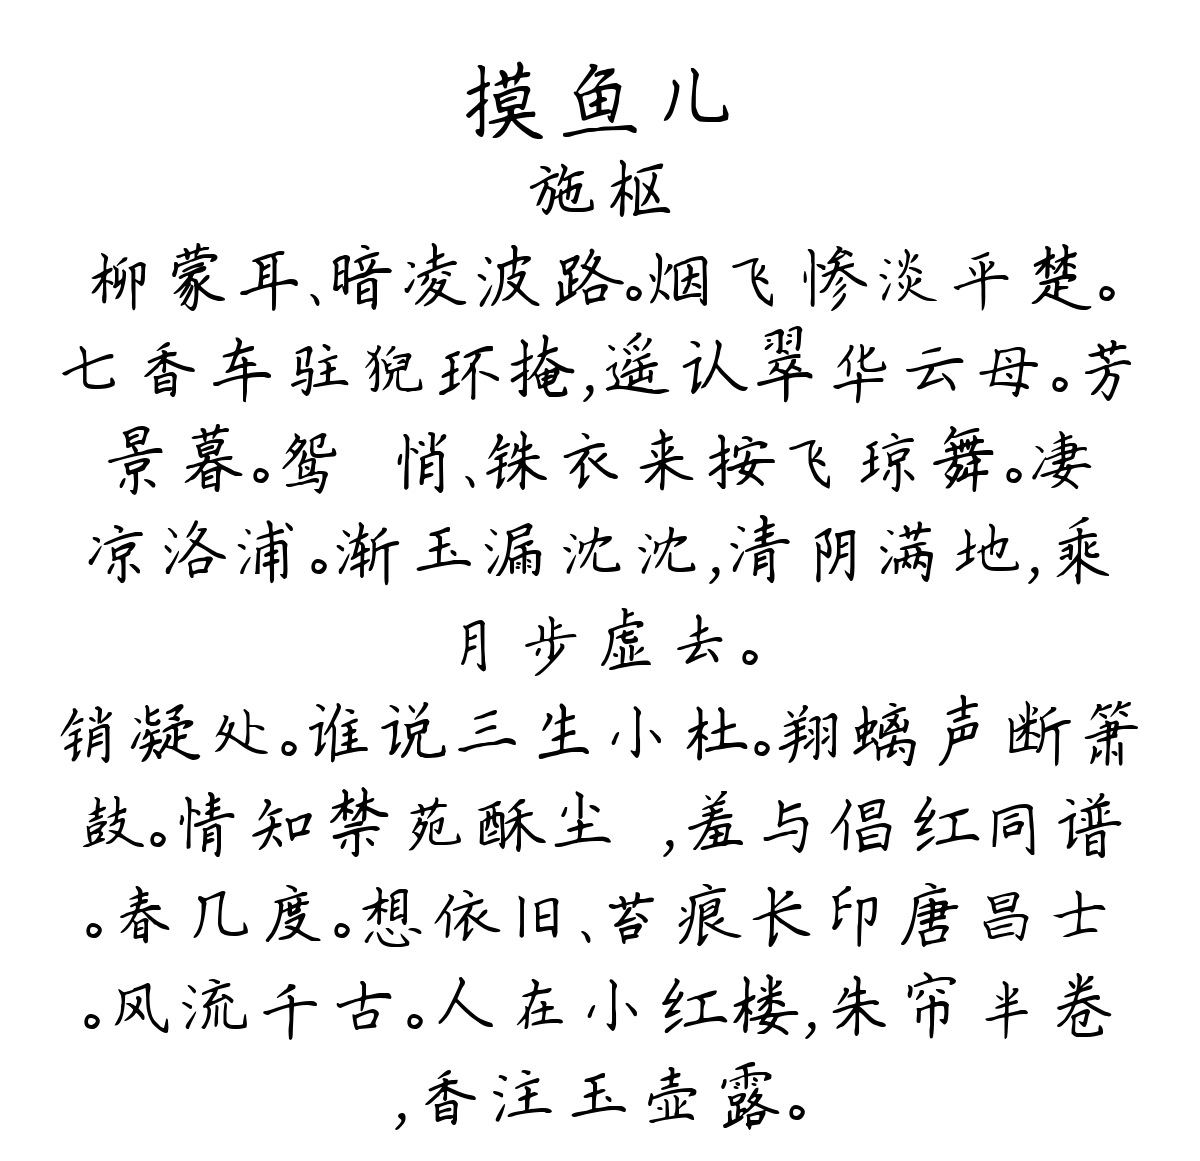 摸鱼儿
施枢
柳蒙耳、暗凌波路。烟飞惨淡平楚。
七香车驻猊环掩,遥认翠华云母。芳
景暮。鸳 悄、铢衣来按飞琼舞。凄
凉洛浦。渐玉漏沈沈,清阴满地,乘
月步虚去。
销凝处。谁说三生小杜。翔螭声断箫
鼓。情知禁苑酥尘 ,羞与倡红同谱
。春几度。想依旧、苔痕长印唐昌士
。风流千古。人在小红楼,朱帘半卷
,香注玉壶露。